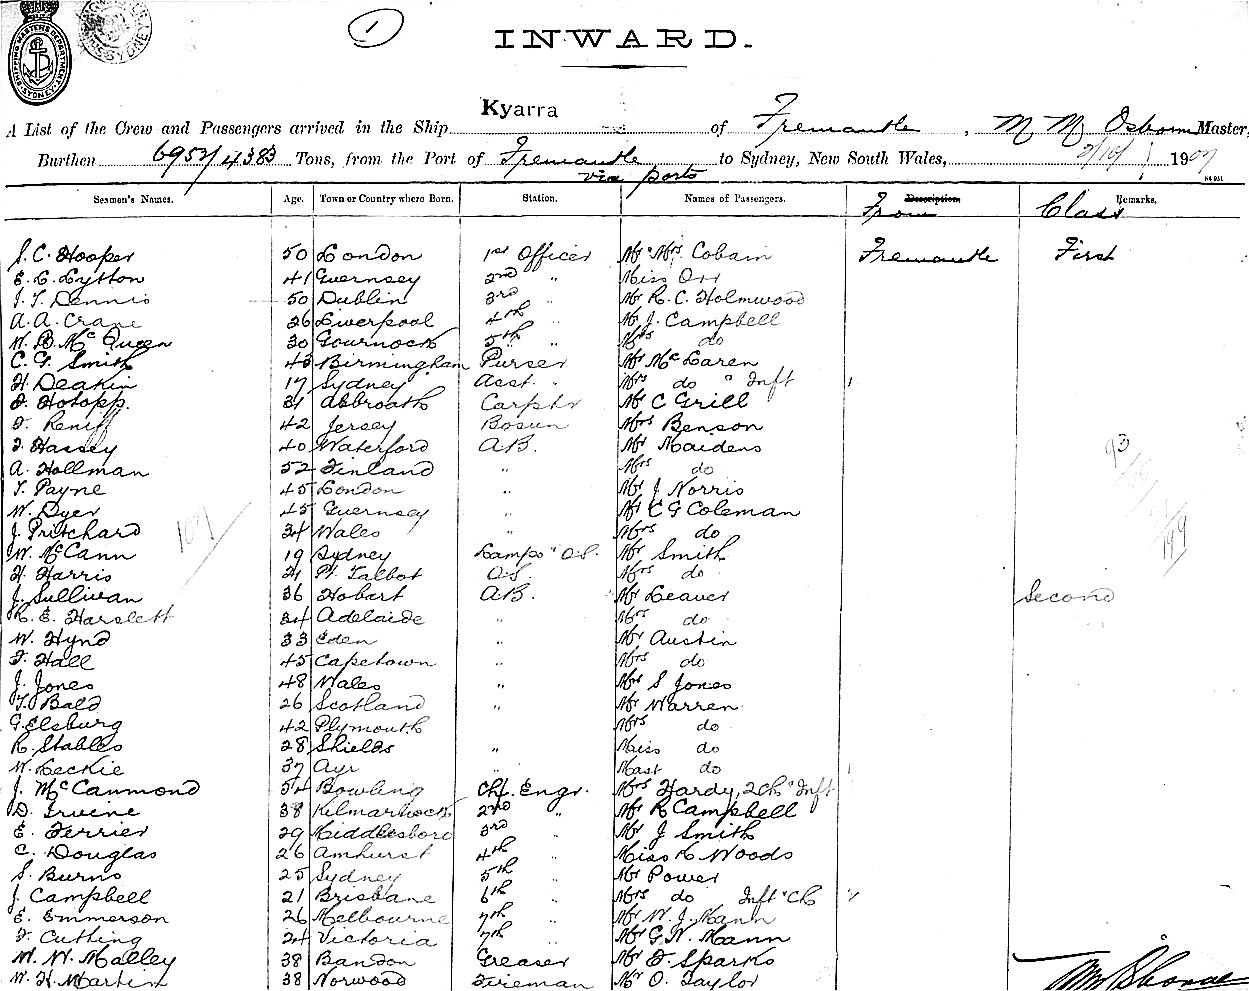 SHIPPING MASTERS DEPARTMENT SYDNEY
1
INWARD.
A List of the Crew and Passengers arrived in the Ship Kyarra of Fremantle, M M Osborn Master,
Burthen 6953/4383 Tons, from the Port of Fremantle via ports to Sydney, New South Wales, 190
Seamen's Names. Age. Town or Country where Born. Station. Names of Passengers. Description From Class Remarks.
J. C. Hooper 50 London 1st Officer Mr "Mrs Cobain Fremantle First
E. L. Lytton 41 Guernsey 2nd " Miss Orr
J. T. Dennis 50 Dublin 3rd " Mr R. C. Holmwood
A. A. Crane 26 Liverpool 4th " Mr J. Campbell
W. B. McQueen 30 Gournock 5th " Mrs do
C. G. Smith 43 Birmingham Purser Mr McLaren
H. Deakin 17 Sydney Asst. " Mrs do " Inft
F. Hotopp. 31 Abbroath Carptr Mr C Grill
F. Reniff 42 Jersey Bosun Mrs Benson
T. Hassey 40 Waterford A.B. Mr Maidens
A. Hollman 52 Finland " Mrs do
T. Payne 45 London " Mr J Norris
W. Dyer 45 Guernsey " Mr C G Coleman
J. Pritchard 34 Wales " Mrs do
W. McCann 19 Sydney Lamps " O.S. Mr Smith
H. Harris 21 Pt. Talbot O.S. Mrs do
J. Sullivan 36 Hobart A.B. Mr Leaver Second
R. E. Harslett 34 Adelaide " Mrs do
W. Hynd 33 Eden " Mr Austin
F. Hall 45 Capetown " Mrs do
J. Jones 48 Wales " Mrs S Jones
T. Bald 26 Scotland " Mr Warren
G. Elsburg 42 Plymouth Mrs do
R. Stables 28 Shields " Miss do
W. Leckie 37 Ayr " Mast do
J. McCammond 54 Bowling Chf. Engr. Mrs Hardy, 2 Ch " Inft
D. Irvine 38 Kilmarnock 2nd " Mr R Campbell
E. Ferrier 29 Middlesboro 3rd " Mr J Smith
C. Douglas 26 Amhurst 4th " Miss K Woods
S. Burns 25 Sydney 5th " Mr Power
J. Campbell 21 Brisbane 6th " Mrs do Inft " Ch
E. Emmerson 26 Melbourne 7th " Mr W. J. Mann
F. Cutting 24 Victoria 7th " Mr G. N. Mann
M. W. Malley 38 Bandon Greaser Mr F. Sparks
W. H. Martin 38 Norwood Fireman Mr O. Taylor
107
93
199